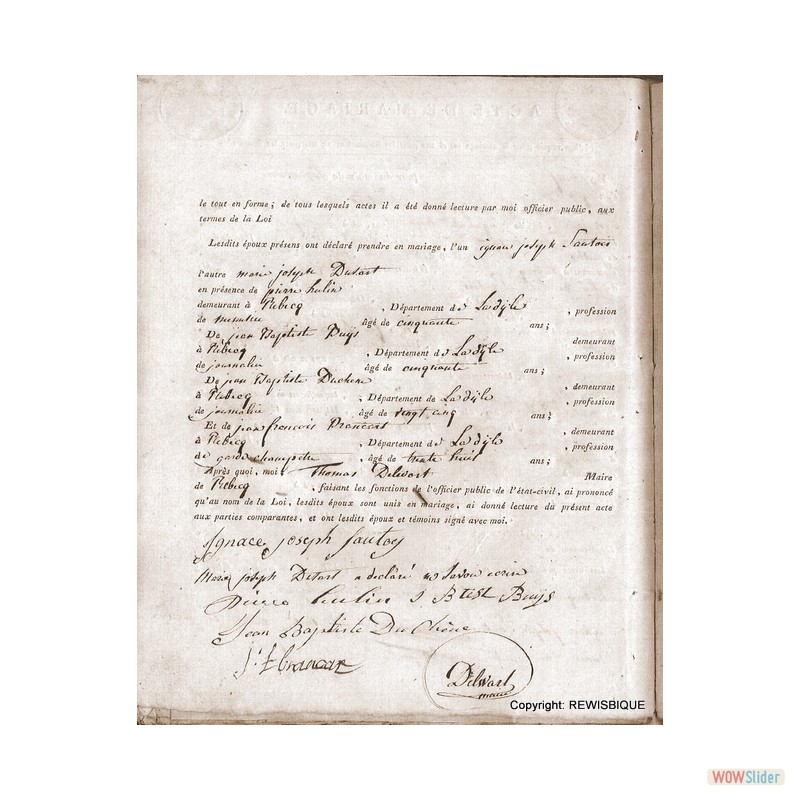 ACTE DE MARIAGE
le tout en forme; de tous lesquels actes il a été donné lecture par moi officier public, aux
termes de la Loi
Lesdits époux présens ont déclaré prendre en mariage, l'un ignace joseph Sautois
l'autre marie joseph Dutart
en présence de pierre hulin
demeurant à Rebecq , Département de La dÿle , profession
de âgé de cinquante ans;
De jean Baptiste Buÿs demeurant
à Rebecq , Département de La dÿle , profession
de journalier âgé de cinquante ans;
De jean Baptiste Duchene , demeurant
à Rebecq , Département de La dÿle , profession
de journalier âgé de vingt cinq ans;
Et de jean francois , demeurant
à Rebecq , Département de La dÿle , profession
de garde champetre , âgé de trente huit ans;
Après quoi, moi Thomas Delwart Maire
de Rebecq , faisant les fonctions de l'officier public de l'état-civil, ai prononcé
qu'au nom de la Loi, lesdits époux sont unis en mariage, ai donné lecture du présent acte
aux parties comparantes, et ont lesdits époux et témoins signé avec moi.
Ignace joseph Sautoy
Marie joseph Dutart a déclaré ne savoir ecrire
Pierre hulin J Btist Buys
Jean Baptiste Du Chêne
Delwart
maire
Copyright: REWISBIQUE
WOWSlider